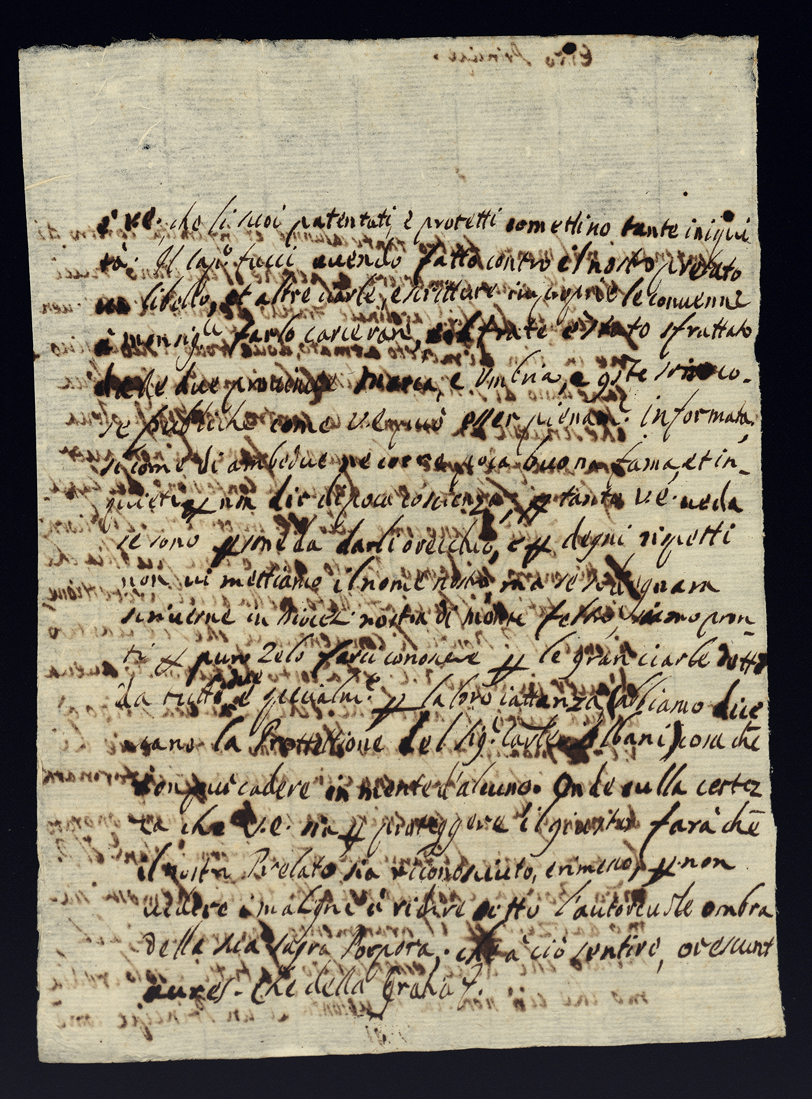 à V.E. che li suoi patentati, e protetti comettino tante iniqui
tà: Il Cap.o Tucci avendo fatto contro il nostro prelato
un libello, et altre ciarle, e scritture improprie le convenne
à monsig.re farlo carcerare, e il frate è stato sfruttato
dalle due provincie Marca, e Umbria, e q.ste sono co-
se publiche come V.E. può esser pienam.te informata,
si come di ambedue ne corre poca buona fama, et in-
quieti p non dir di poca coscienza, p tanto V.E. veda
se sono psone da darli orecchio, e p degni rispetti
non vi mettiamo il nome nostro ma se si degnara
scriverne in Diocesi nostra di Monte feltro, siamo pron-
ti p puro zelo farci conoscere p le gran ciarle dette
da tutti due e specialm.te p la loro iattanza (abbiamo dice
vano la Prottettione del Sig.r Car.le Albani) cosa che
non può cadere in mente d'alcuno. Onde sulla certez
za che V.E. sia p proteggere il giusto farà che
il nostro Prelato sia riconosciuto, e rimesso, p non
vedere i maligni à ridere sotto l'autorevole ombra
della sua Sagra Porpora, che à ciò sentire, orescunt
aures. Che della Grazia &.